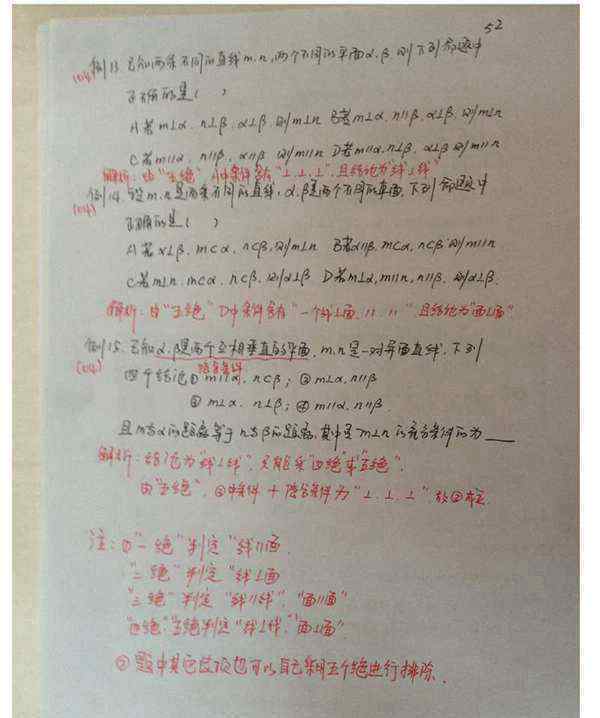 52
例13. 已知两条不同的直线m.n,两个不同的平面α.β,则下列命题中
(04)
正确的是( )
A若m⊥α. n⊥β. α⊥β. 则m⊥n B若m⊥α. n∥β. α⊥β. 则m⊥n
C若m∥α. n∥β. α∥β 则m∥n D若m∥α. n⊥β. α⊥β 则m∥n
解析:由"五绝" A中条件含有"⊥.⊥.⊥".且结论为"线⊥线"
例14. 设m.n是两条不同的直线,α.β是两个不同的平面.下列命题中
(04)
正确的是( )
A若α⊥β. m⊂α. n⊂β. 则m⊥n B若α∥β. m⊂α. n⊂β 则m∥n
C若m⊥n. m⊂α. n⊂β. 则α⊥β D若m⊥α. m∥n. n∥β. 则α⊥β.
解析:由"五绝" D中条件含有"一个线⊥面. ∥. ∥".且结论为"面⊥面"
例15. 已知α.β是两个互相垂直的平面. m.n是一对异面直线.下列
(04) 隐含条件
四个结论① m∥α. n⊂β; ② m⊥α. n∥β
③ m⊥α. n⊥β; ④ m∥α. n∥β.
且m与α的距离等于n与β的距离.其中是m⊥n的充分条件的为
解析:结论为"线⊥线".只能采"四绝"或"五绝".
由"五绝". ③中条件+隐含条件为"⊥.⊥.⊥".故③
注:①"一绝"判定"线∥面
"二绝"判定"线⊥面
"三绝"判定"线∥线"."面∥面"
"四绝""五绝判定"线⊥线"."面⊥面"
②题中其它选项也可以自己采用五个绝进行排除.